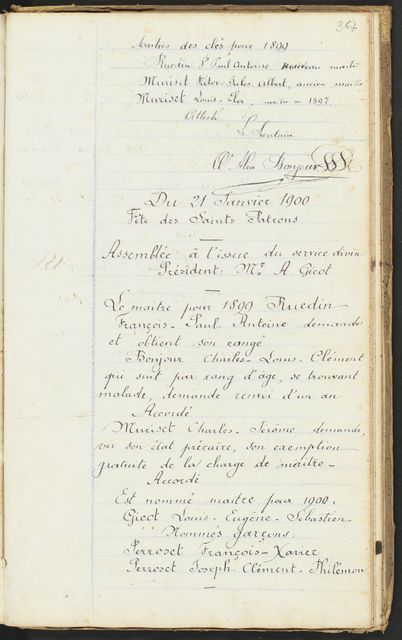 367
Maitres des clés pour 1899
Ruedin Fs Paul Antoine nouveau maitre
Muriset Victor-Jules-Albert, ancien maitre
Muriset Louis-Eloi, maitre en 1897.
Atteste
Le Secrétaire
Ch Alex Bonjour
Du 21 Janvier 1900
Fête des Saints Patrons
Assemblée à l'issue du service divin
Président: Mr A Gicot
Le maitre pour 1899 Ruedin
François-Paul Antoine demande
et obtient son congé
Bonjour Charles-Louis-Clément
qui suit par rang d'âge, se trouvant
malade, demande renvoi d'un an
Accordé
Muriset Charles-Jérôme demande,
vu son état précaire, son exemption
gratuite de la charge de maitre-
Accordé
Est nommé maitre pour 1900.
Gicot Louis-Eugène-Sébastien
Nommés garçons:
Perroset François-Xavier
Perroset Joseph-Clément-Philémon